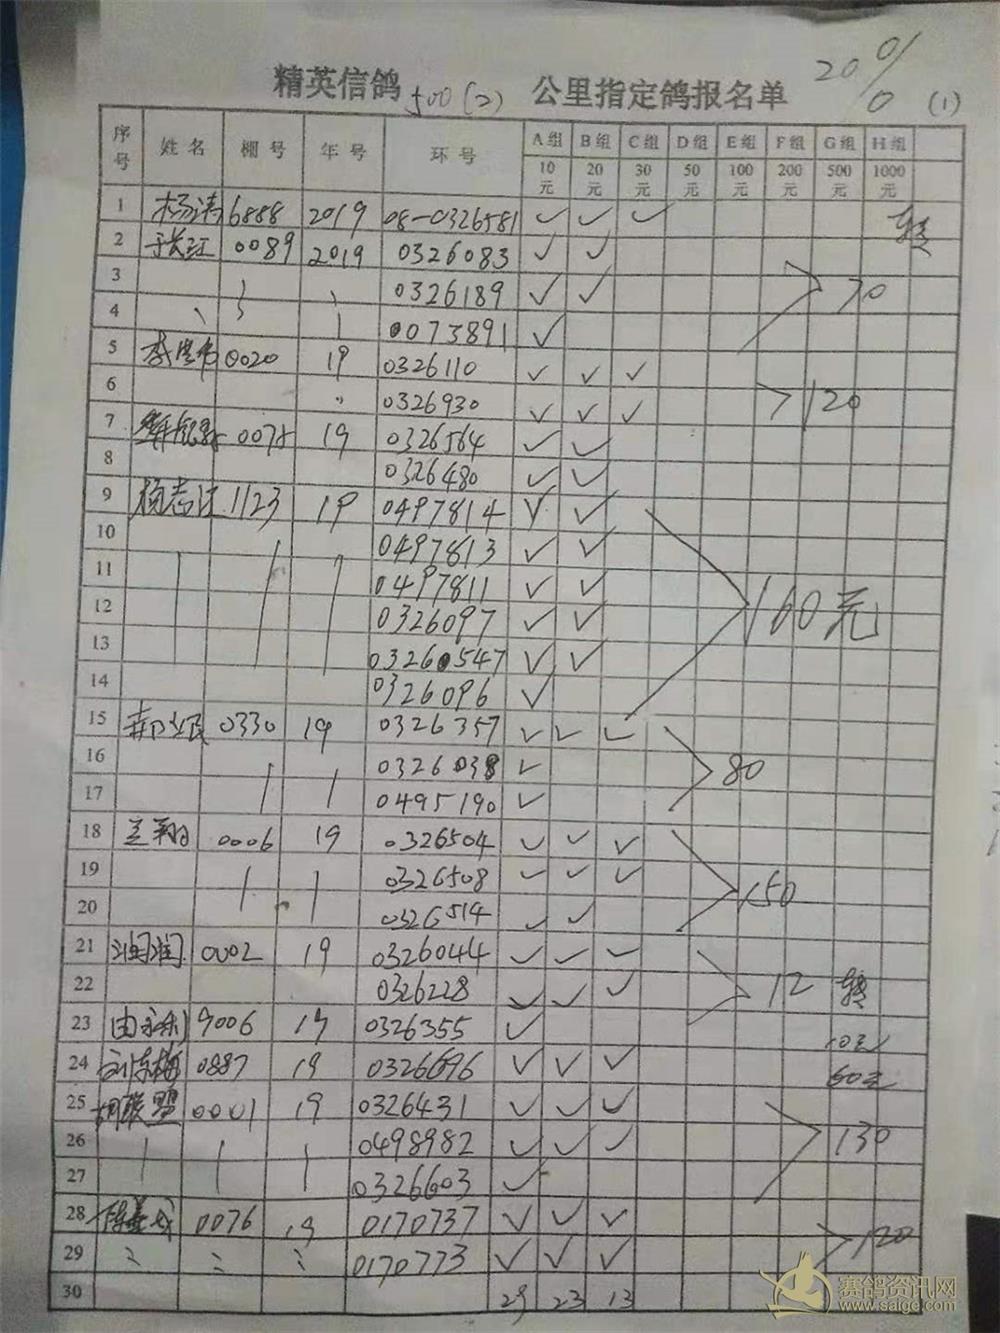 精英信鸽 500(2) 公里指定鸽报名单 20% (1)
序号 姓名 棚号 年号 环号 A组 B组 C组 D组 E组 F组 G组 H组
10元 20元 30元 50元 100元 200元 500元 1000元
1 杨涛 6888 2019 08-0326581 ✓ ✓ ✓ 转
2 于长江 0089 2019 0326083 ✓ ✓
3 0326189 ✓ ✓ 70
4 0073891 ✓
5 0020 19 0326110 ✓ ✓ ✓
6 0326930 ✓ ✓ ✓ 120
7 19 0326564 ✓ ✓
8 0326480 ✓ ✓
9 杨志江 1123 19 0497814 ✓ ✓
10 0497813 ✓ ✓
11 0497811 ✓ ✓
12 0326097 ✓ ✓ 160元
13 03260547 ✓ ✓
14 0326096 ✓
15 0330 19 0326357 ✓ ✓ ✓
16 0326038 ✓ 80
17 0495190 ✓
18 立翔 0006 19 0326504 ✓ ✓ ✓
19 0326508 ✓ ✓ ✓
20 0326514 ✓ ✓ 150
21 润润 0002 19 0326044 ✓ ✓ ✓
22 0326228 ✓ ✓ ✓ 12 转
23 由永利 9006 19 0326355 ✓ 10元
24 刘冻梅 0887 19 0326696 ✓ ✓ ✓ 60元
25 胡联盟 0001 19 0326431 ✓ ✓ ✓
26 0498982 ✓ ✓ ✓ 130
27 0326603 ✓
28 0076 19 0170737 ✓ ✓ ✓
29 0170773 ✓ ✓ ✓ 120
30 29 23 13
赛鸽资讯网
www.saige.com